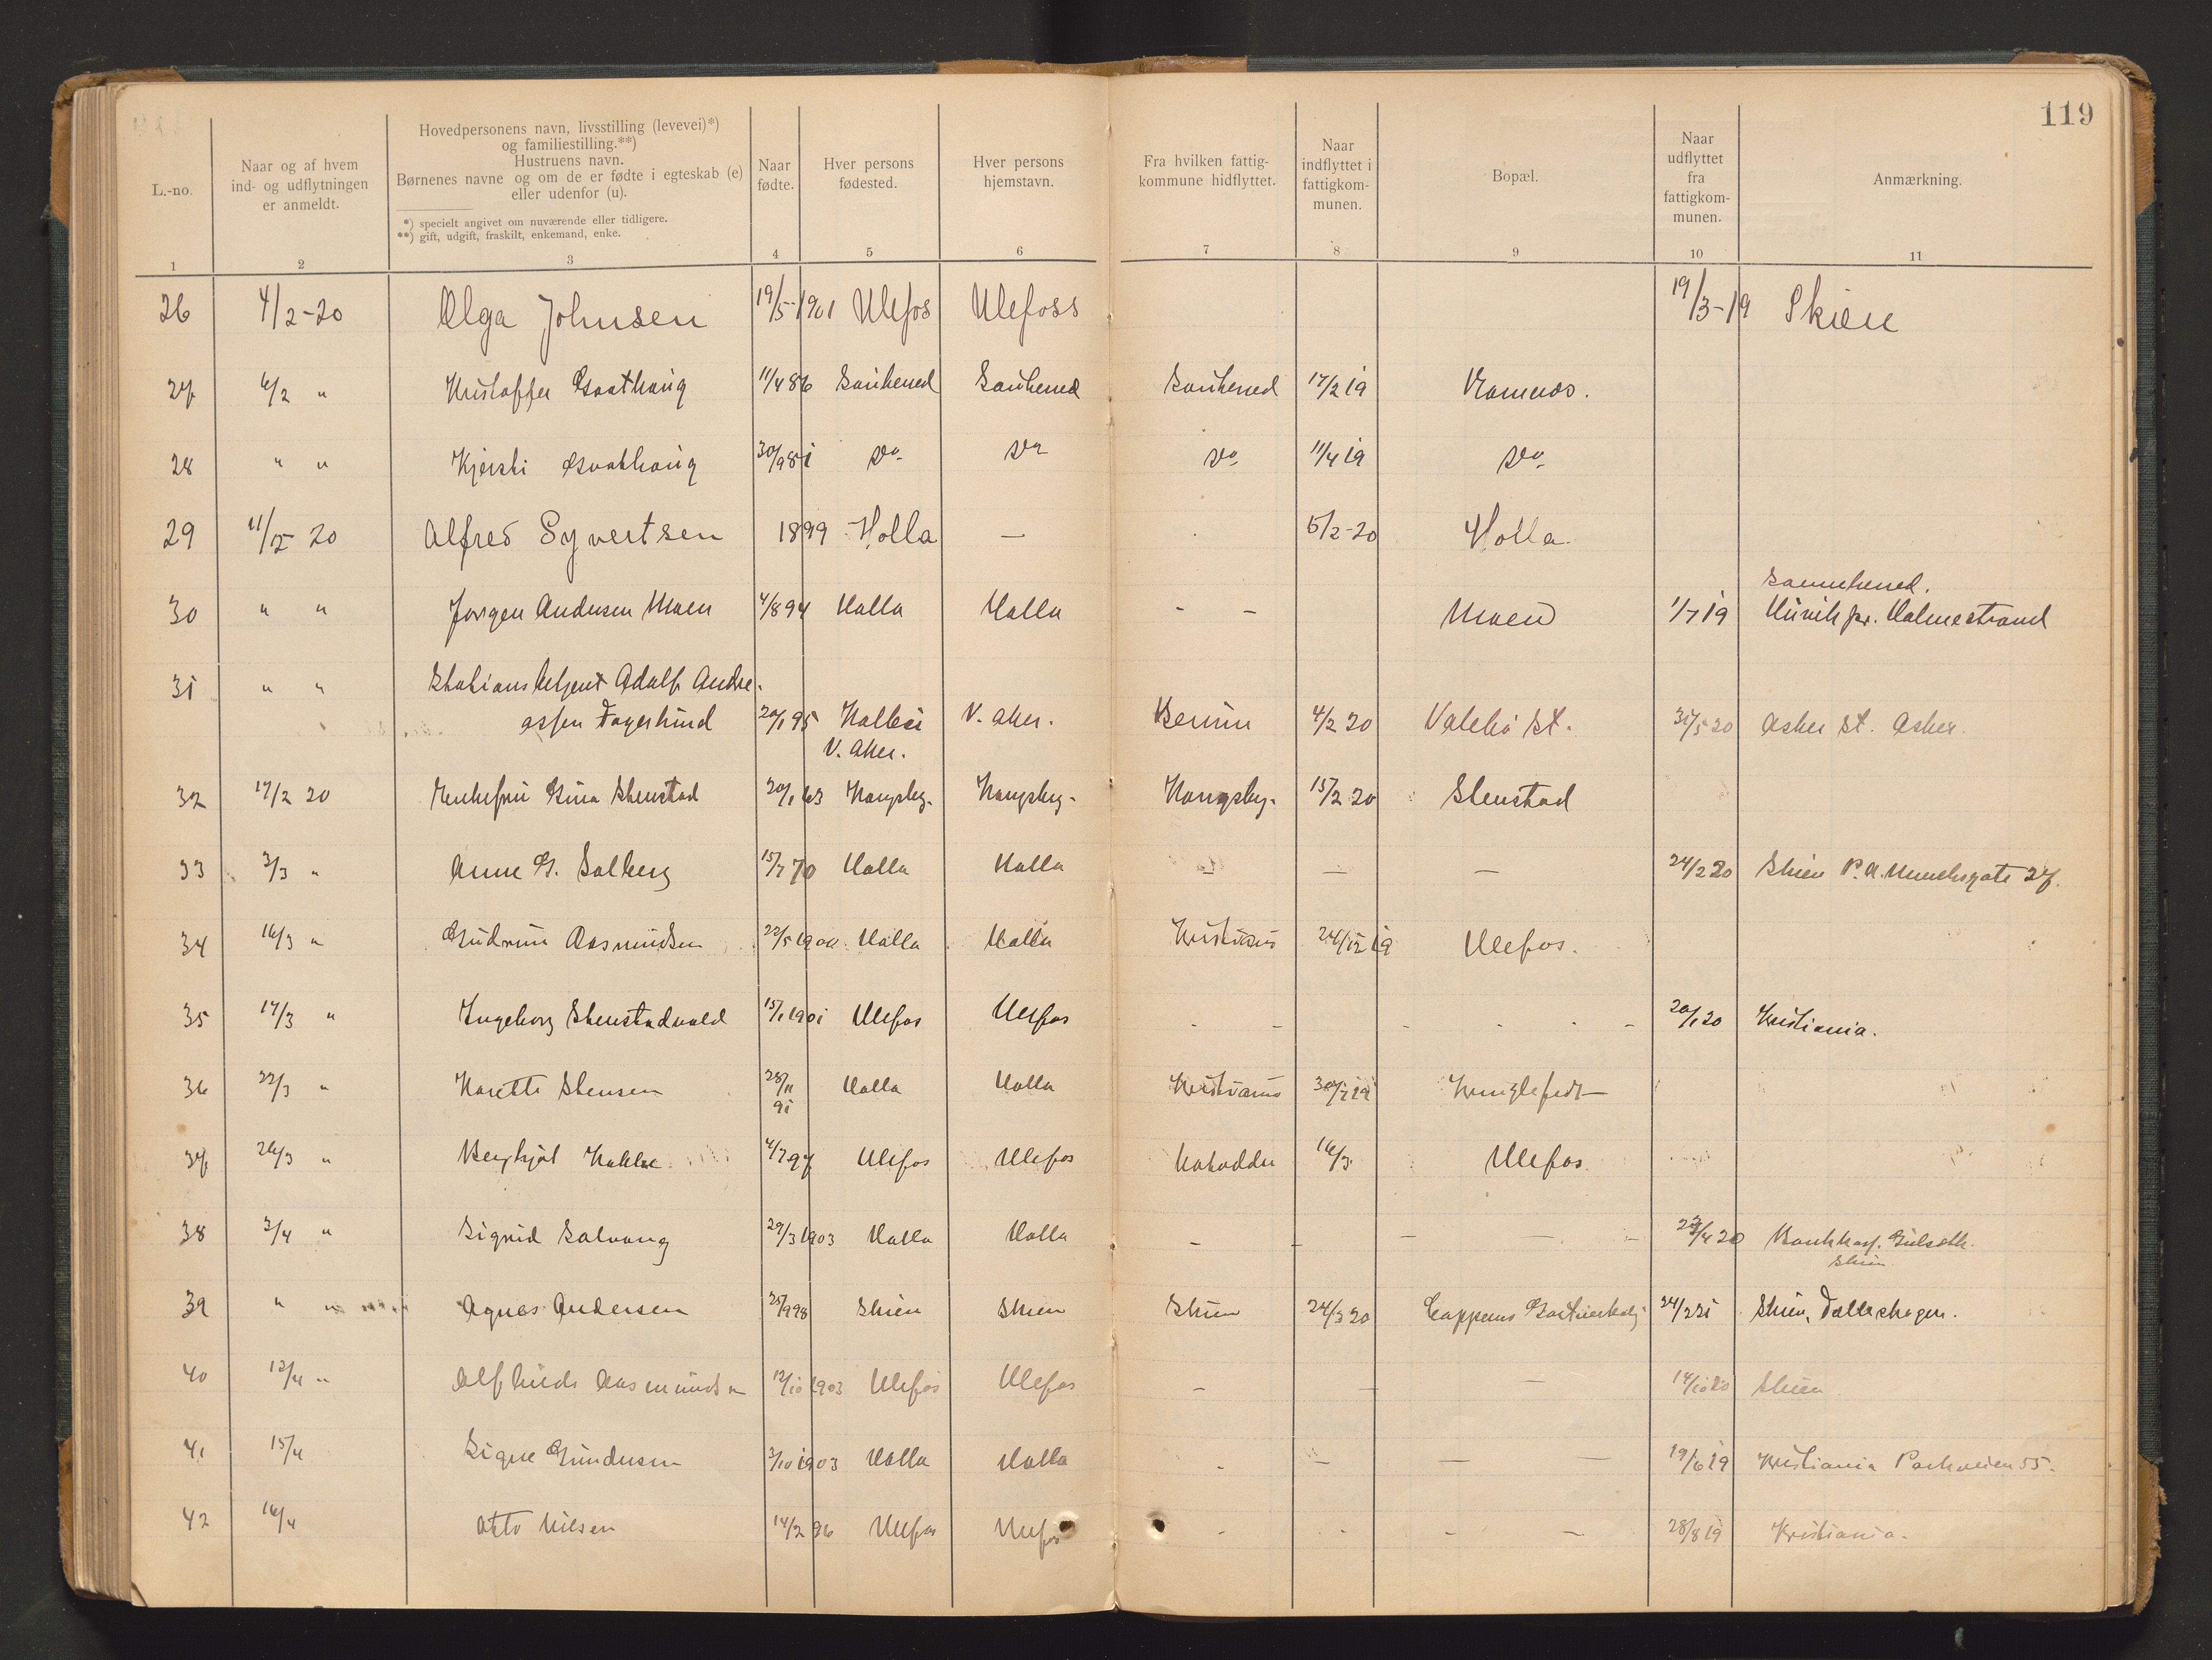 119
L.-no.
Naar og af hvem
ind- og udflytningen
er anmeldt.
Hovedpersonens navn, livsstilling (levevei)*)
og familiestilling.**)
Hustruens navn.
Børnenes navne og om de er fødte i egteskab (e)
eller udenfor (u).
*) specielt angivet om nuværende eller tidligere.
**) gift, udgift, fraskilt, enkemand, enke.
Naar
fødte.
Hver persons
fødested.
Hver persons
hjemstavn.
Fra hvilken fattig-
kommune hidflyttet.
Naar
indflyttet i
fattigkom-
munen.
Bopæl.
Naar
udflyttet
fra
fattigkom-
munen.
Anmærkning.
1 2 3 4 5 6 7 8 9 10 11
26 4/2-20 Olga Johnsen 19/5-1901 Ulefos Ulefoss 19/3-19 Skien
27 6/2 " Kristoffer 11/4 86 Sauherred Sauherred Sauherred 17/2 19
28 " " Kjersti 30/9 81 Do Do Do 11/4 19 Do
29 11/2 20 Alfred Syvertsen 1899 Holla — 5/2-20 Holla
Sannherred.
30 " " Jørgen Andersen Moen 4/8 94 Holla Holla - - Moen 1/7 19 pr. Holmestrand
31 " " Stationsbetjent Adolf Andre-
assen Fagerlund 20/1 95 V. Aker. Berum 4/2 20 Valebø st. 31/5 20 Asker st. Asker.
V. Aker.
32 17/2 20 Enkefru Gina Stenstad 20/1 63 Kongsbg. Kongsbg. Kongsbg. 15/2 20 Stenstad
33 3/3 " Anne G. Solberg 15/7 70 Holla Holla - — — 24/2 20 Skien P. A. Munchsgate 27.
34 16/3 " Gudrun Aasmundsen 22/5 1900 Holla Holla Kristiania 24/12 19 Ulefos.
35 17/3 " Ingeborg Stenstadvald 15/1 1901 Ulefos Ulefos - - - - - - 20/1 20 Kristiania.
36 22/3 " Stensen 28/11 91 Holla Holla Kristiania 30/7 19
37 26/3 " 4/7 97 Ulefos Ulefos Notodden 16/3 Ulefos.
38 3/4 " Sigrid Solvang 29/3 1903 Holla Holla - - — — - 20 Gulseth
Skien
39 " " Agnes Andersen 25/9 98 Skien Skien Skien 24/3 20 Cappens 24/2 21 Skien, Falkeshagen.
40 12/4 " Alfhilde Aasmundsen 12/10 1903 Ulefos Ulefos - - — 14/10 20 Skien
41 15/4 Signe Gundersen 3/10 1903 Holla Holla - - — — 19/6 19 Kristiania Parkveien 55.
42 16/4 Otto Nilsen 14/2 96 Ulefos Ulefos - - - — 28/8 19 Kristiania.